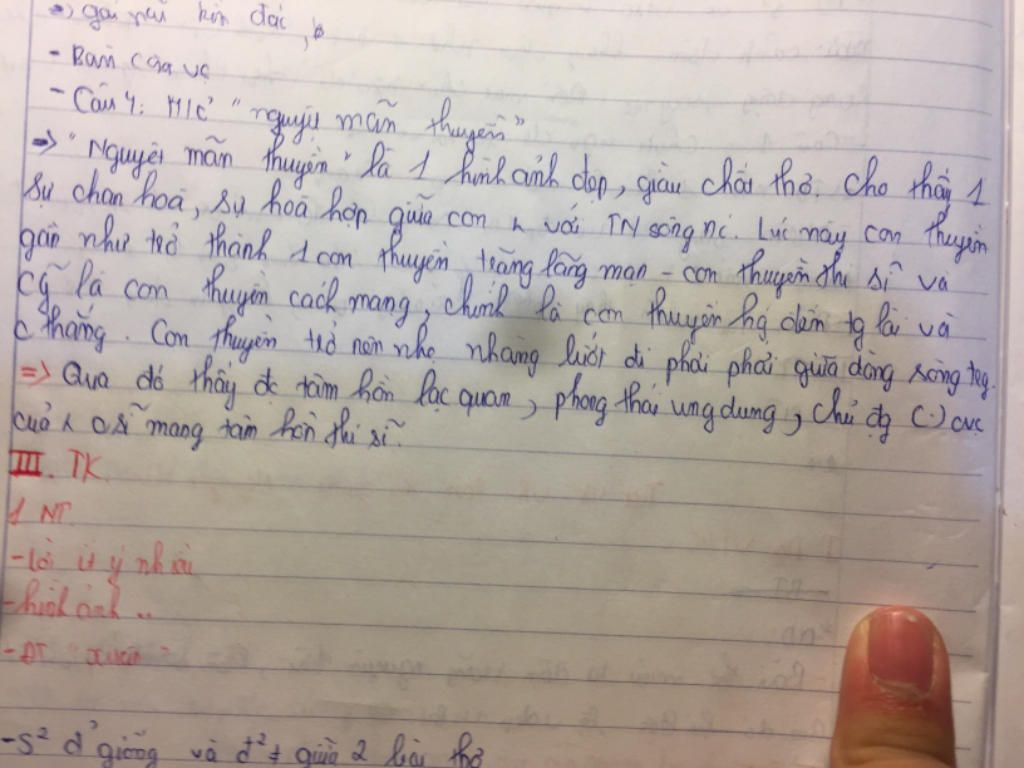 => gợi
- Bàn
- Câu 4: H/ả "nguyệt mãn thuyền"
=> "Nguyệt mãn thuyền" là 1 hình ảnh đẹp, giàu chất thơ. Cho thấy 1
sự chan hoà, sự hoà hợp giữa con với TN sông nc. Lúc này con thuyền
gần như trở thành 1 con thuyền trăng lãng mạn - con thuyền thi sĩ và
cg̃ là con thuyền cách mạng, chính là con thuyền dẫn lái và
c thắng. Con thuyền trở nên nhẹ nhàng lướt đi phơi phới giữa dòng sông trg.
=> Qua đó thấy đc tâm hồn lạc quan, phong thái ung dung, chủ đg (.) cuộc
của sĩ mang tâm hồn thi sĩ.
III. TK
1 NT
- lời ít ý nhiều
- hình ảnh ..
- ĐT "xuân"
- S² đ' giống và đ² ≠ giữa 2 bài thơ